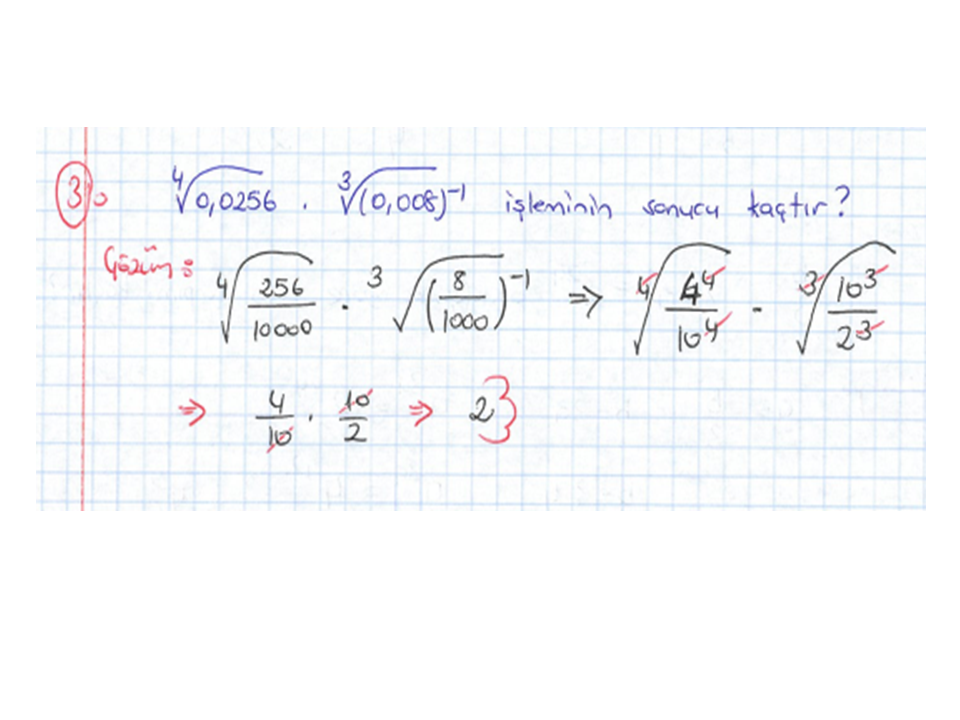 3) ⁴√0,0256 . ³√(0,008)⁻¹ işleminin sonucu kaçtır?
Çözüm: ⁴√(256/10000) . ³√(8/1000)⁻¹ ⇒ ⁴√(4⁴/10⁴) . ³√(10³/2³)
⇒ 4/10 . 10/2 ⇒ 2